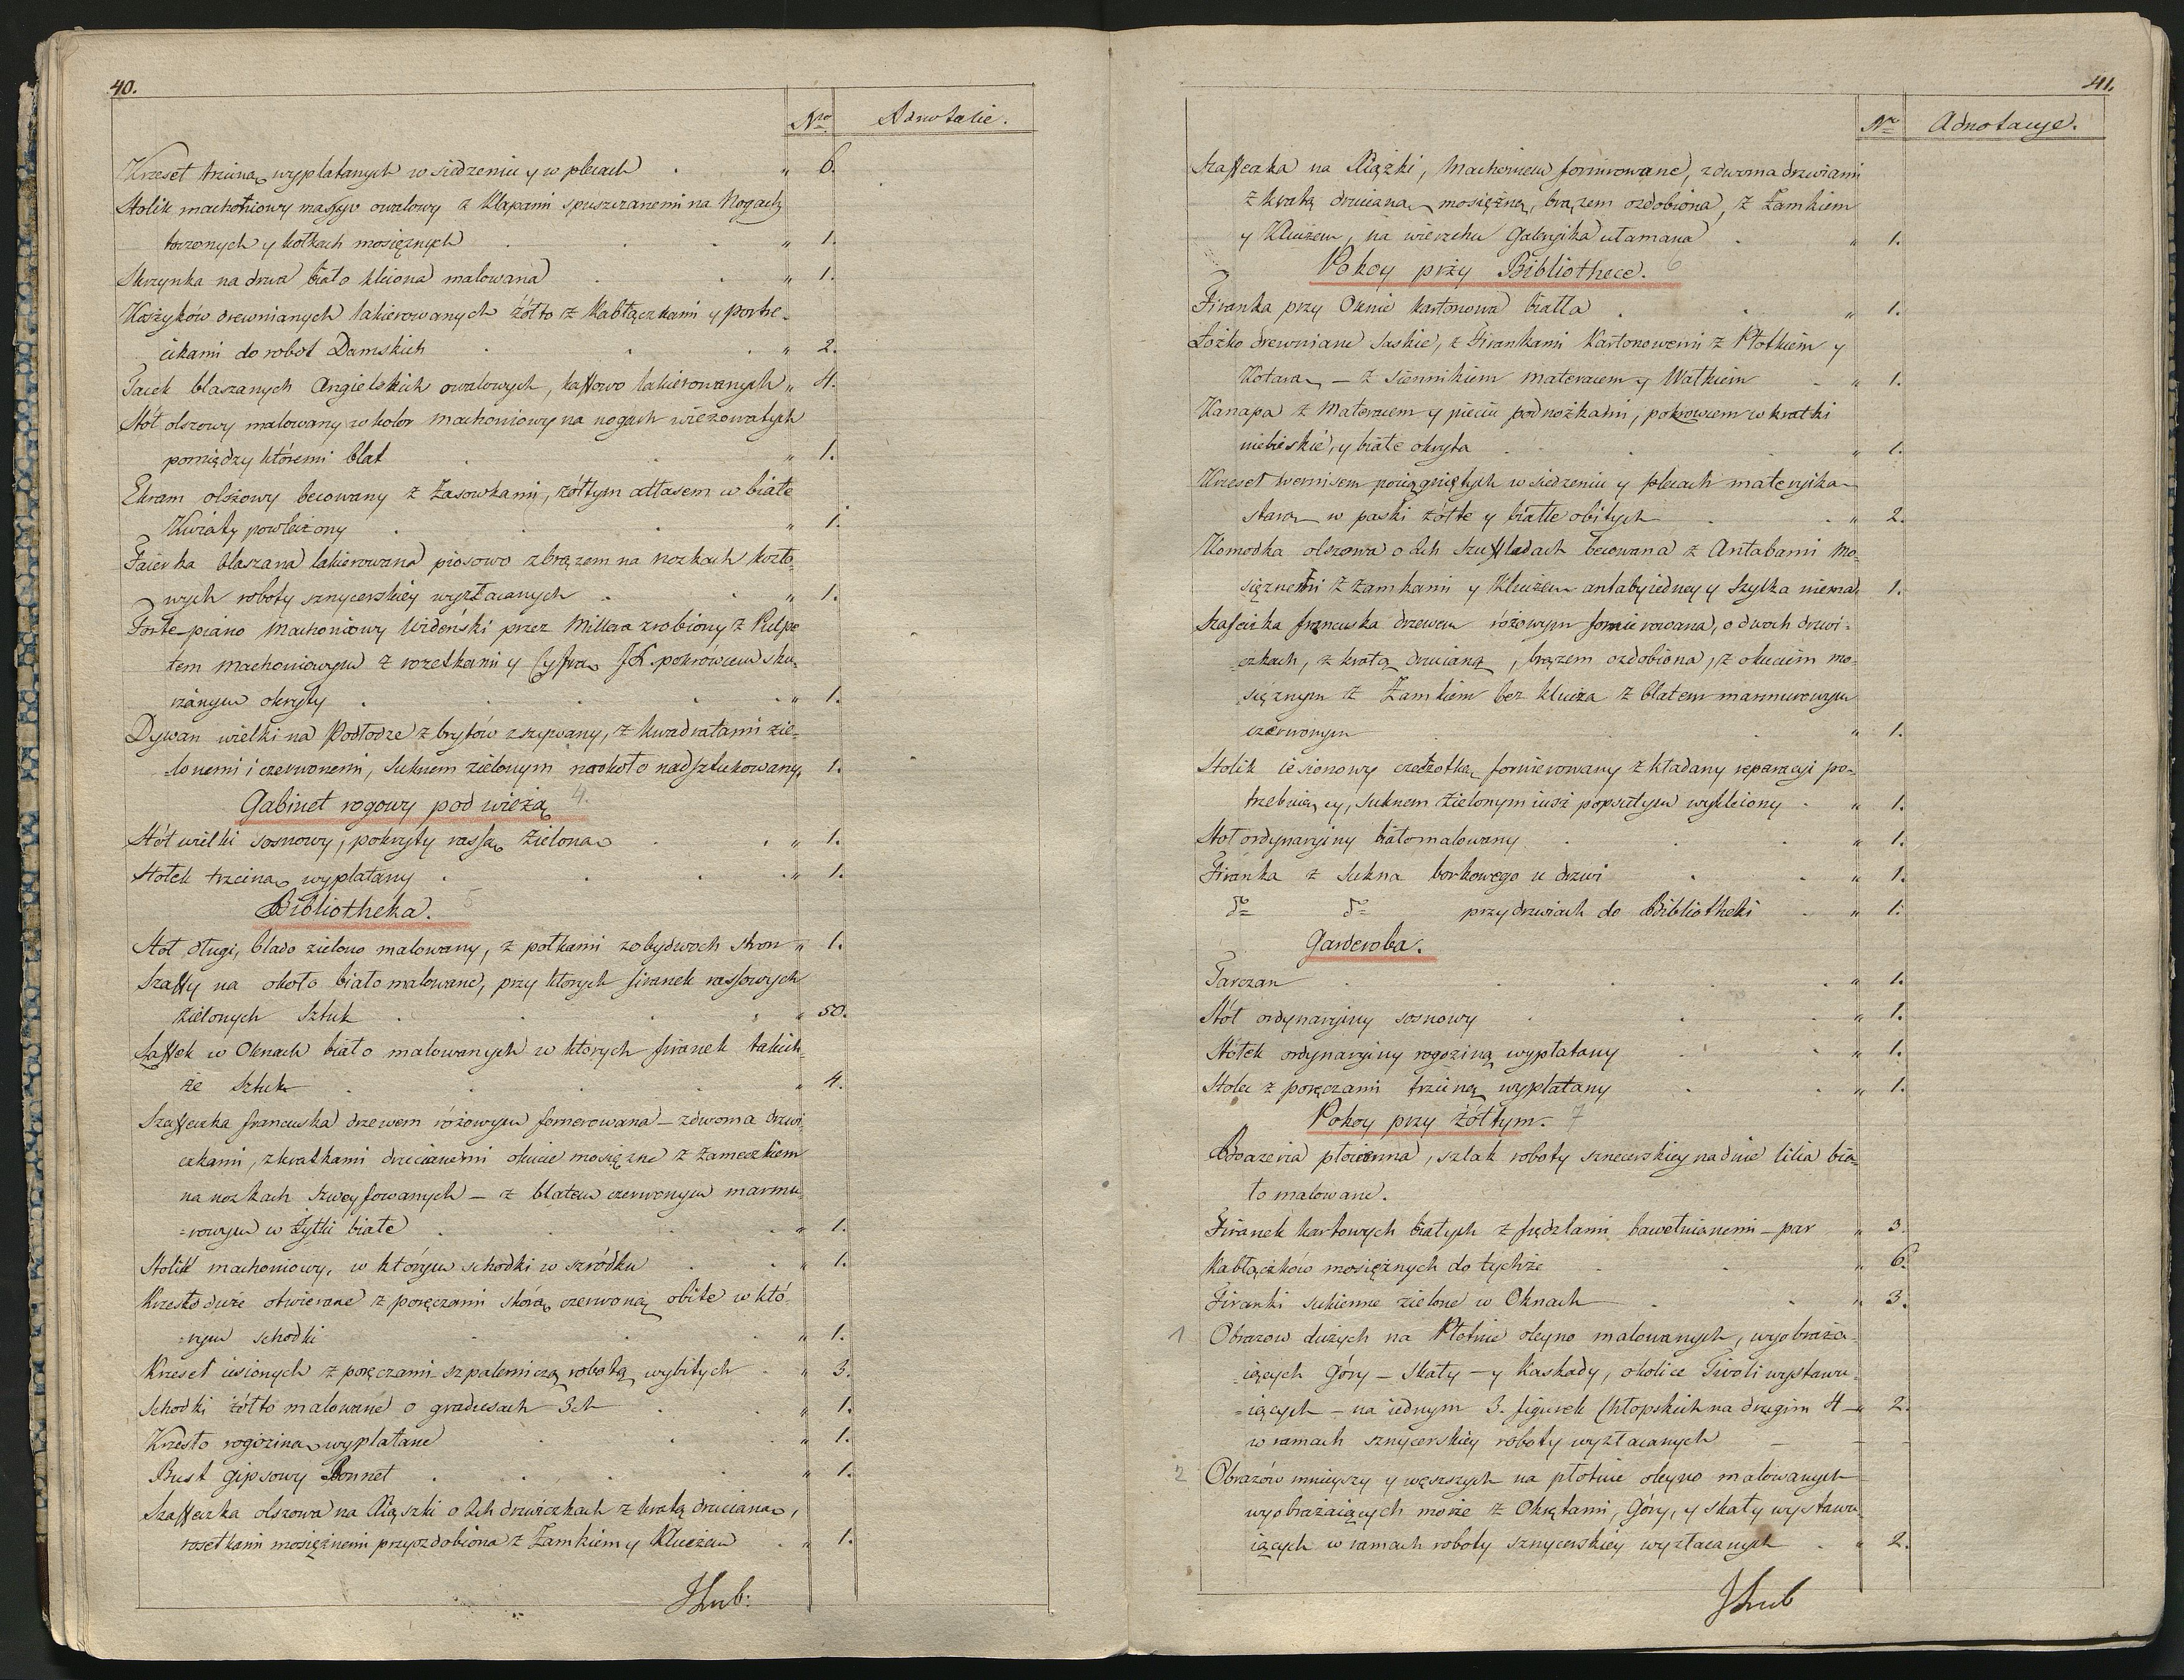 40.
Nro Adnotacie.
Krzeseł trzciną wyplatanych w siedzeniu y w plecach " 6.
Stolik machoniowy massyw owalowy z Klapami spuszczanemi na Nogach
toczonych y kołkach mosiężnych " 1.
Skrzynka na drwa biało kleiona malowana " 1.
Koszyków drewnianych lakierowanych żółto z Kabłączkami y porte-
cikami do robot Damskich " 2.
Tacek blaszanych Angielskich owalowych, kaffowo lakierowanych " 4.
Stół olszowy malowany w kolor machoniowy na nogach wieżowatych
pomiędzy któremi blat " 1.
Ekram olszowy becowany z Zasowkami, żółtym attasem w białe
Kwiaty powleczony " 1.
Faierka blaszana lakierowana piosowo z brązem na nozkach kozło-
wych roboty sznycerskiey wyzłacanych " 1.
Forte-piano Machoniowy Wideński przez Millera zrobiony z Pulpe
tem machoniowym z rozetkami y Cyfrą JK. pokrówcem sku-
rzanym okryty " 1.
Dywan wielki na Podłodze z brytów zszywany, z kwadratami zie-
lonemi i czerwonemi, suknem zielonym naokoło nadsztukowany " 1.
Gabinet rogowy pod wieżą 4.
Stół wielki sosnowy, pokryty rassą zieloną " 1.
Stołek trzciną wyplatany " 1.
Bibliotheka. 5
Stoł długi, blado zielono malowany, z połkami z obydwoch stron " 1.
Szaffy na około biało malowane, przy ktorych firanek rassowych
zielonych Sztuk " 50.
Szaffek w Oknach biało malowanych w ktorych firanek takich-
że Sztuk " 4.
Szaffeczka francuska drzewem różowym fornerowana - z dwoma drzwi-
czkami, z kratkami drucianemi okucie mosiężne z Zameczkiem
na nozkach szweyfowanych - z blatem czerwonym marmu-
-rowym w żyłki białe " 1.
Stolik machoniowy, w którym schodki w szródku " 1.
Krzesło duże otwierane z poręczami skórą czerwoną obite w któ-
-rym schodki " 1.
Krzeseł iesionych z poręczami szpalerniczą robotą wybitych " 3.
Schodki żółto malowane o gradusach 3ch " 1.
Krzesło rogoziną wyplatane " 1.
Bust gipsowy Bonnet " 1.
Szaffeczka olszowa na Xiąszki o 2ch drzwiczkach z kratą drucianą,
rosetkami mosiężnemi przyozdobiona z Zamkiem y Kluczem " 1.
JLub:
41.
Nro Adnotacye.
Szaffeczka na Xiążki, Machoniem fornirowane, z dwoma drzwiami
z kratą drucianą mosiężną, brązem ozdobiona, z Zamkiem
y Kluczem, na wierzchu Galeryika utamana " 1.
Pokoy przy Bibliothece. 6
Firanka przy Oknie kartonowa biała " 1.
Łóżko drewniane Saskie, z Firankami Kartonowemi z Płotkiem y
Kotarą - z siennikiem materacem y Wałkiem " 1.
Kanapa z Materacem y pięciu podnożkami, pokrowcem w kratki
niebieskie, y białe okryta " 1.
Krzeseł wernisem pociągniętych w siedzeniu y plecach materyika
starą w paski żółte y białe obitych " 2.
Komodka olszowa o 2ch szufladach becowana z Antabami mo-
siężnemi z zamkami y Kluczem antaby iedney y Szyłka niema " 1.
Szafeczka francuska drzewem różowym fornierowana, o dwoch drzwi-
-czkach, z kratą drucianą, brązem ozdobiona, z okuciem mo-
-siężnym z Zamkiem bez klucza z blatem marmurowym
czerwonym " 1.
Stolik iesionowy czeczotką fornierowany z kładany reparacyi po-
trzebuiący, suknem zielonym iusz popsutym wykleiony " 1.
Stoł ordynaryiny biało malowany " 1.
Firanka z Sukna borkowego u drzwi " 1.
do do przy drzwiach do Bibliotheki " 1.
Garderoba.
Tarczan " 1.
Stół ordynaryiny sosnowy " 1.
Stółek ordynaryiny rogoziną wyplatany " 1.
Stolec z poręczami trzciną wyplatany " 1.
Pokoy przy żółtym. 7
Boazeria płócienna, szlak roboty sznecerskiey na dnie lilia bia-
ło malowane.
Firanek kartowych białych z frędzlami bawełnianemi - par " 3.
Kabłączków mosiężnych do tychże " 6.
Firanki sukienne zielone w Oknach " 3.
1 Obrazow dużych na Płotnie oleyno malowanych, wyobraża-
-iących Góry - Skały - y Kaskady, okolice Tivoli wystawu-
-iących - na iednym 3. figurek Chłopskich na drugim 4 - " 2.
w ramach sznycerskiey roboty wyzłacanych
2 Obrazów mnieyszy y węzszych na płotnie oleyno malowanych
wyobrażaiących morze z Okrętami, Góry, y skały wystawu-
iących w ramach roboty sznycerskiey wyzłacanych " 2.
JLub